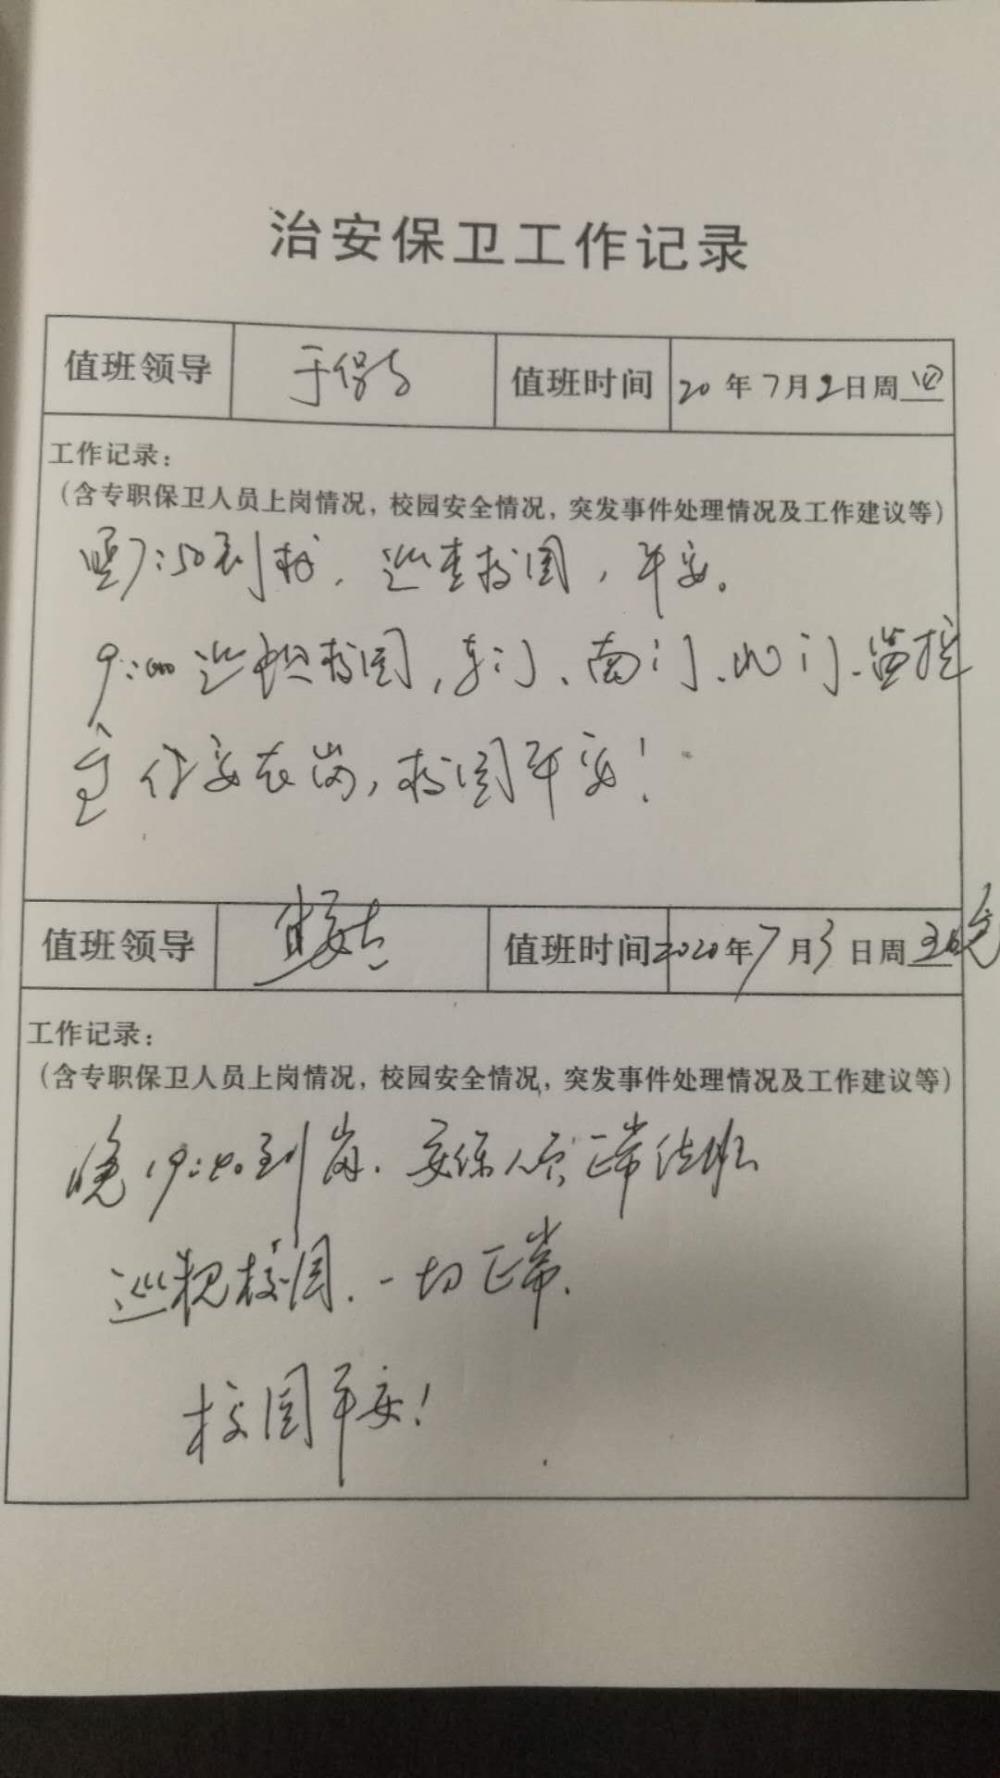 治安保卫工作记录
值班领导 于 值班时间 20年7月2日周四
工作记录：
（含专职保卫人员上岗情况，校园安全情况，突发事件处理情况及工作建议等）
7:50到校，巡查校园，平安。
9:00巡视校园，东门、南门、北门、监控
室 保安在岗，校园平安！
值班领导 值班时间 2020年7月3日周五晚
工作记录：
（含专职保卫人员上岗情况，校园安全情况，突发事件处理情况及工作建议等）
晚19:40到岗.安保人员正常值班
巡视校园.一切正常.
校园平安！